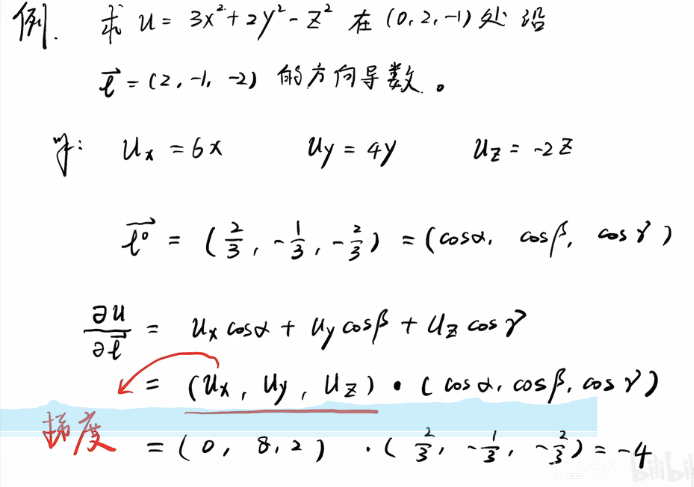 例. 求 u = 3x²+2y²-z² 在 (0,2,-1) 处 沿
l⃗ = (2,-1,-2) 的方向导数。
解: uₓ = 6x  u_y = 4y  u_z = -2z
l⃗⁰ = (2/3, -1/3, -2/3) = (cosα, cosβ, cosγ)
∂u/∂l⃗ = uₓcosα + u_ycosβ + u_zcosγ
= (uₓ, u_y, u_z) • (cosα, cosβ, cosγ)
梯度 = (0, 8, 2) · (2/3, -1/3, -2/3) = -4
bilibili